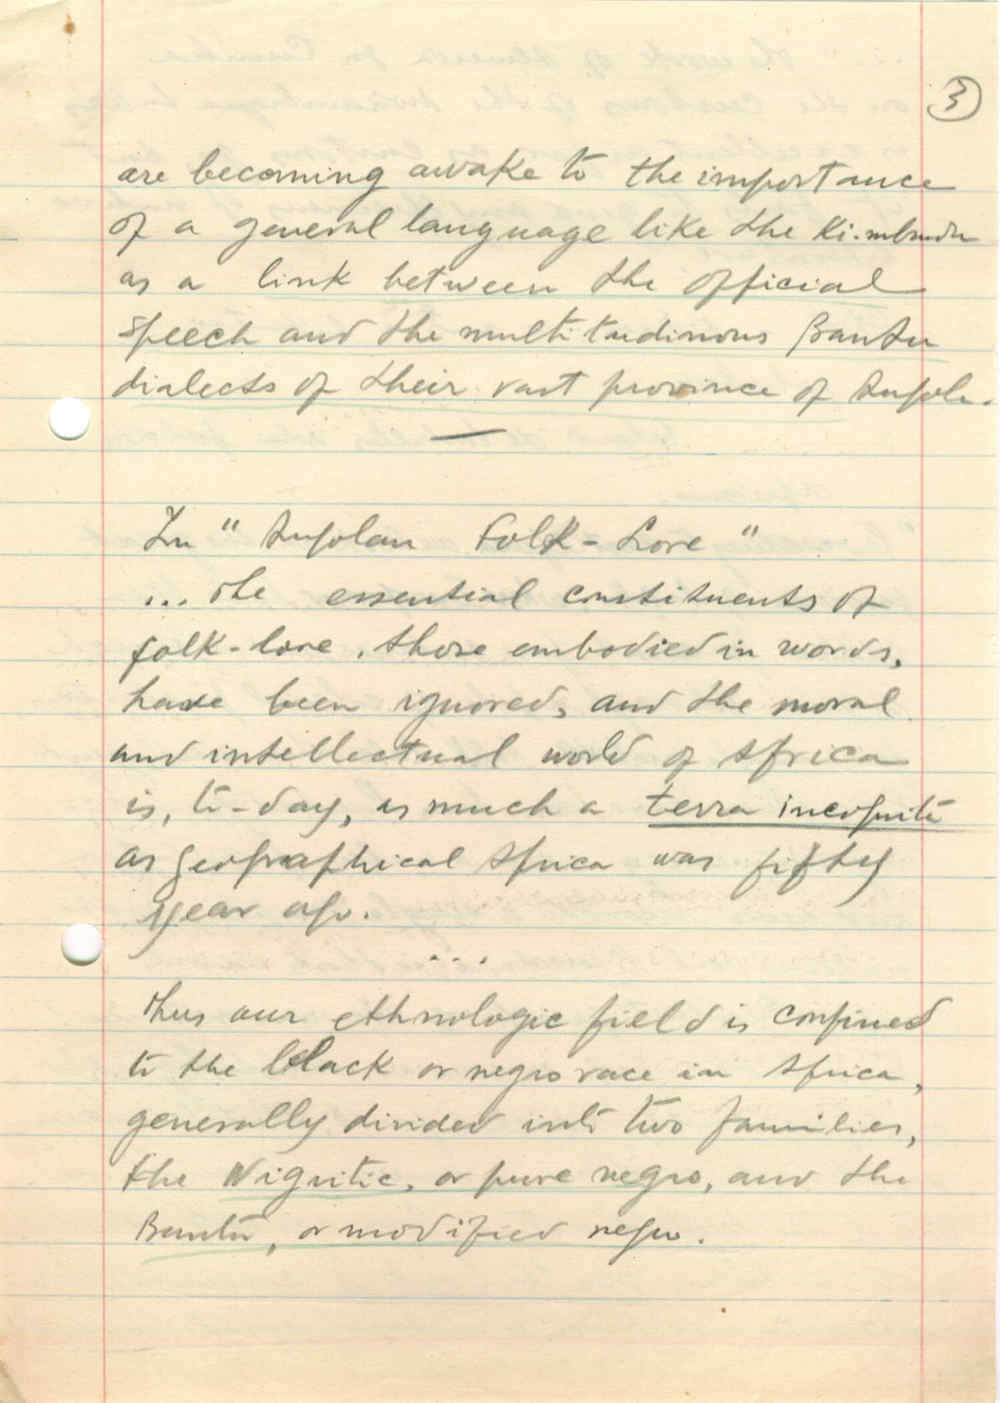 3
are becoming awake to the importance
of a general language like the Ki-mbundu
as a link between the official
speech and the multitudinous Bantu
dialects of their vast province of Angola.
In "Angolan Folk-Lore"
... the essential constituents of
folk-lore, those embodied in words,
have been ignored, and the moral
and intellectual world of Africa
is, to-day, as much a terra incognita
as geographical Africa was fifty
year ago.
...
Thus our ethnologic field is confined
to the black or negro race in Africa,
generally divided into two families,
the Nigritic, or pure negro, and the
Bantu, or modified negro.